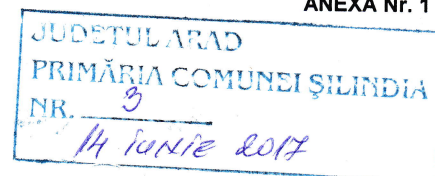 ANEXA Nr. 1
JUDEŢUL ARAD
PRIMĂRIA COMUNEI ŞILINDIA
NR. 3
14 iunie 2017